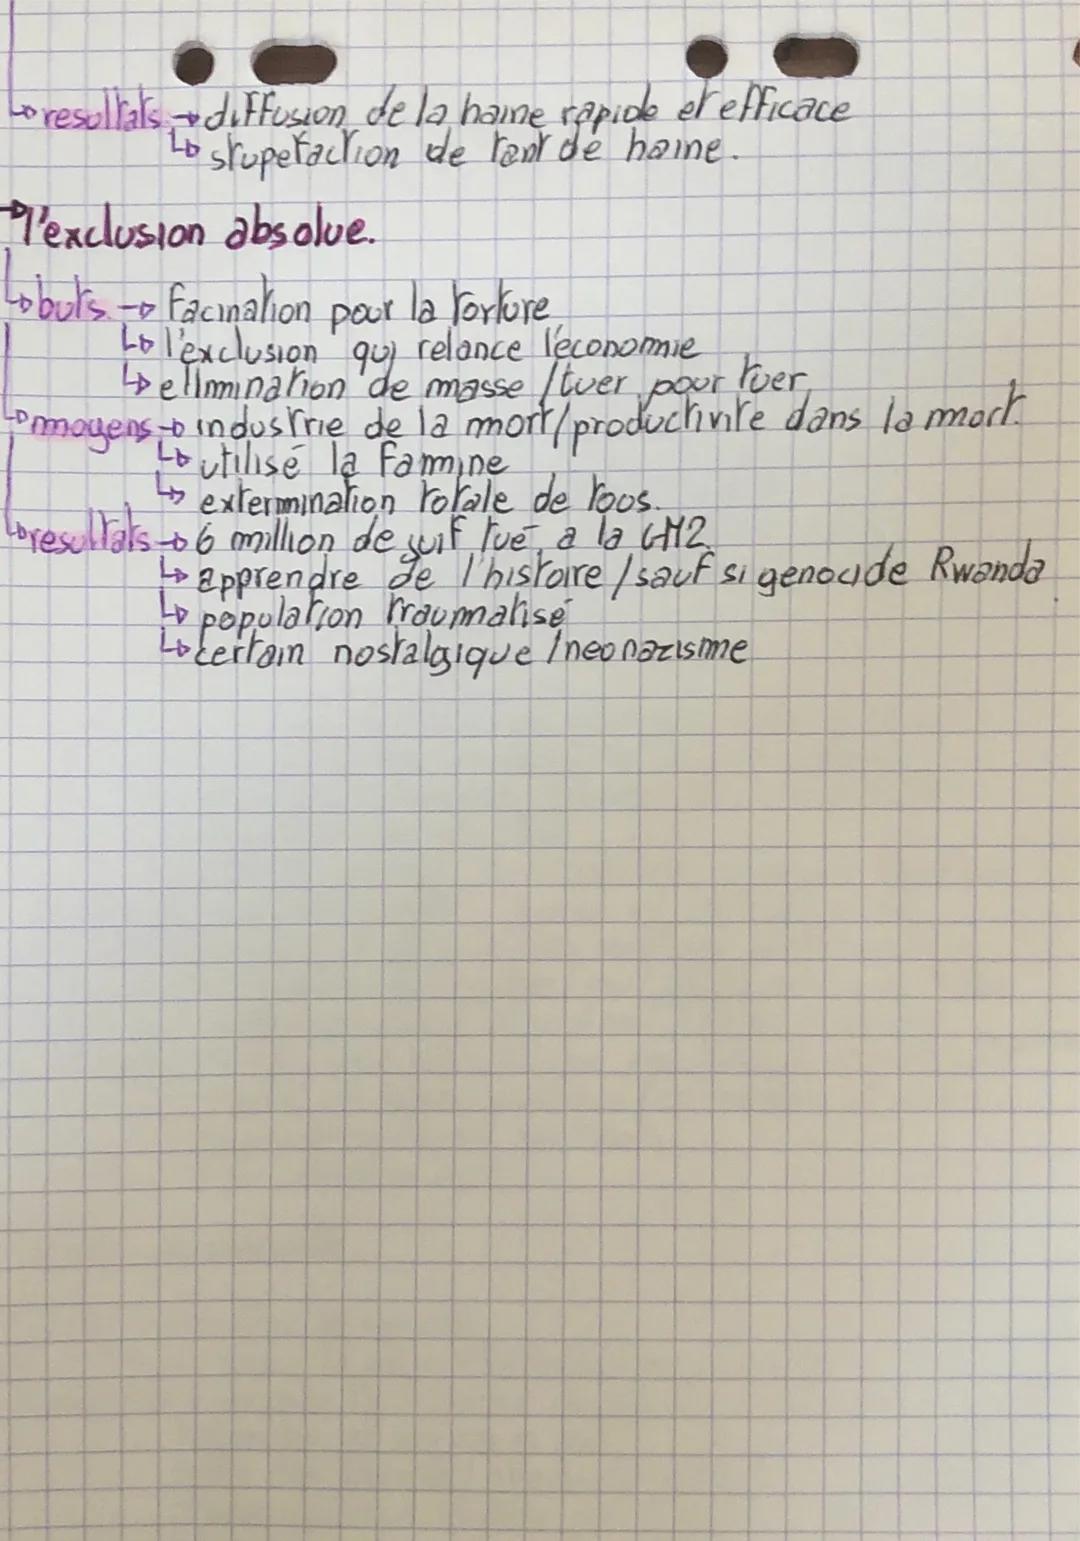 ↳ resultats → diffusion de la haine rapide et efficace
↳ stupefaction de tant de haine.
→ l'exclusion absolue.
↳ buts → facination pour la torture
↳ l'exclusion qui relance l'économie
↳ elimmination de masse / tuer pour tuer
↳ moyens → industrie de la mort/productivite dans la mort.
↳ utilisé la famine
↳ extermination totale de tous.
↳ resultats → 6 million de juif tué a la GM2
↳ apprendre de l'histoire / sauf si genocide Rwanda
↳ population traumatisé
↳ certain nostalgique / neonazisme